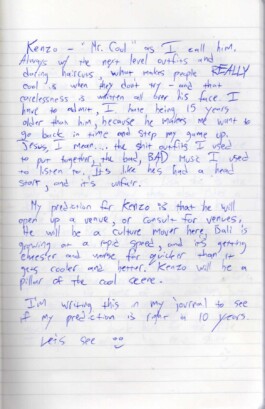 Kenzo - "Mr. Cool" as I call him.
Always w/ the next level outfits and
daring haircuts, what makes people REALLY
cool is when they don't try - and that
carelessness is written all over his face. I
have to admit, I hate being 15 years
older than him, because he makes me want to
go back in time and step my game up.
Jesus, I mean... the shit outfits I used
to put together, the bad, BAD music I used
to listen to. It's like he's had a head
start, and it's unfair.
My prediction for Kenzo is that he will
open up a venue, or consult for venues.
He will be a culture mover here. Bali is
growing at a rapid speed, and it's getting
cheesier and worse far quicker than it
gets cooler and better. Kenzo will be a
pillar of the cool scene.
I'm writing this in my journal to see
if my prediction is right in 10 years.
Let's see